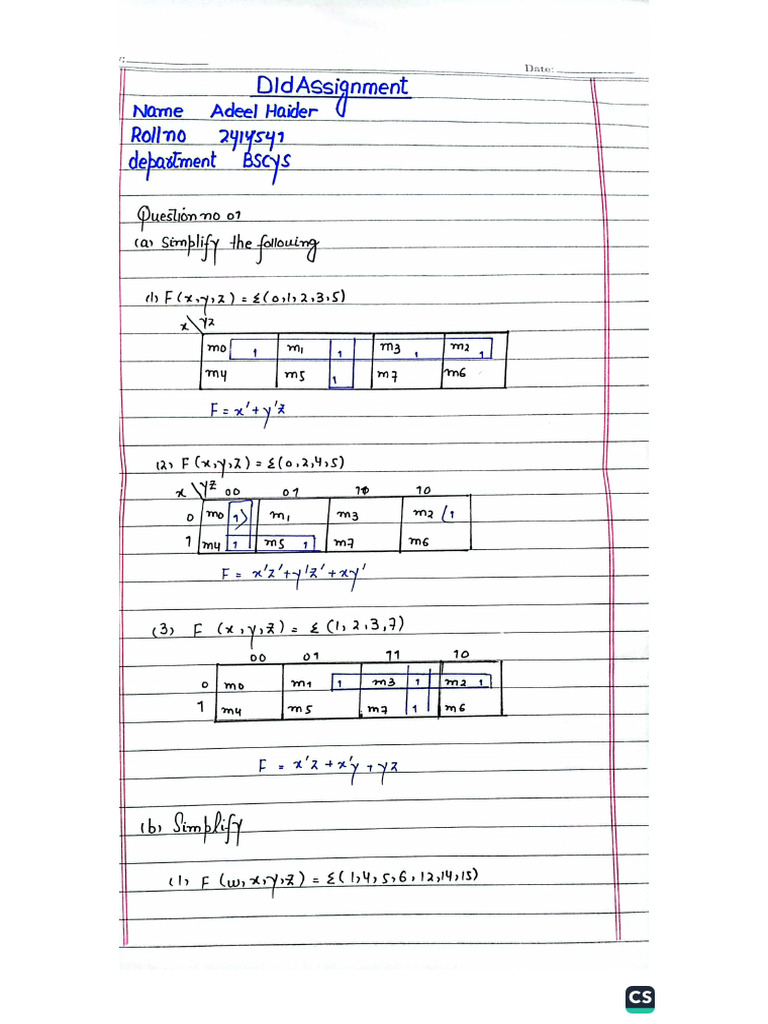 Date:
Dld Assignment
Name Adeel Haider
Roll no 2414541
department BSCYS
Question no 01
(a) Simplify the following
(1) F(x,y,z) = Σ(0,1,2,3,5)
x yz
m0 1 m1 1 m3 1 m2 1
m4 m5 1 m7 m6
F = x' + y'z
(2) F(x,y,z) = Σ(0,2,4,5)
x yz 00 01 10 10
0 m0 1 m1 m3 m2 1
1 m4 1 m5 1 m7 m6
F = x'z' + y'z' + xy'
(3) F (x,y,z) = Σ (1,2,3,7)
00 01 11 10
0 m0 m1 1 m3 1 m2 1
1 m4 m5 m7 1 m6
F = x'z + x'y + yz
(b) Simplify
(1) F (w,x,y,z) = Σ(1,4,5,6,12,14,15)
CS